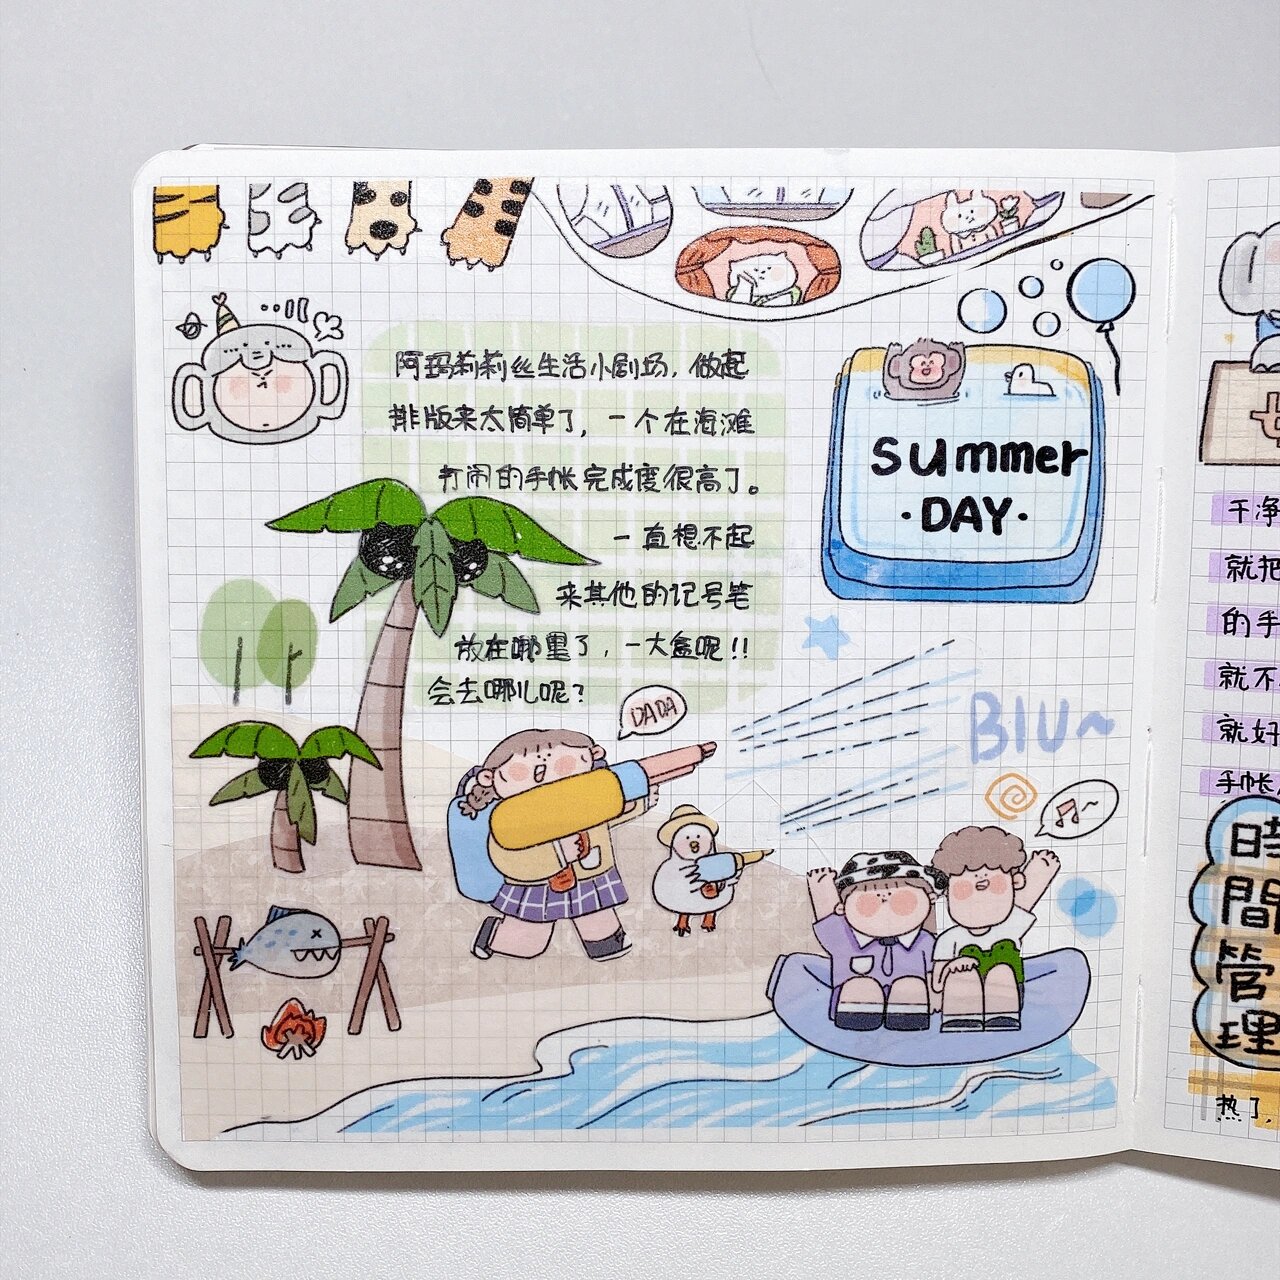 阿玛莉莉丝生活小剧场，做起
排版来太简单了，一个在海滩
打闹的手帐完成度很高了。
一直想不起
来其他的记号笔
放在哪里了，一大盒呢!!
会去哪儿呢?
summer
·DAY·
DADA
BIU~
干净
就把
的手
就不
就好
手帐
時
間
管
理
热了，